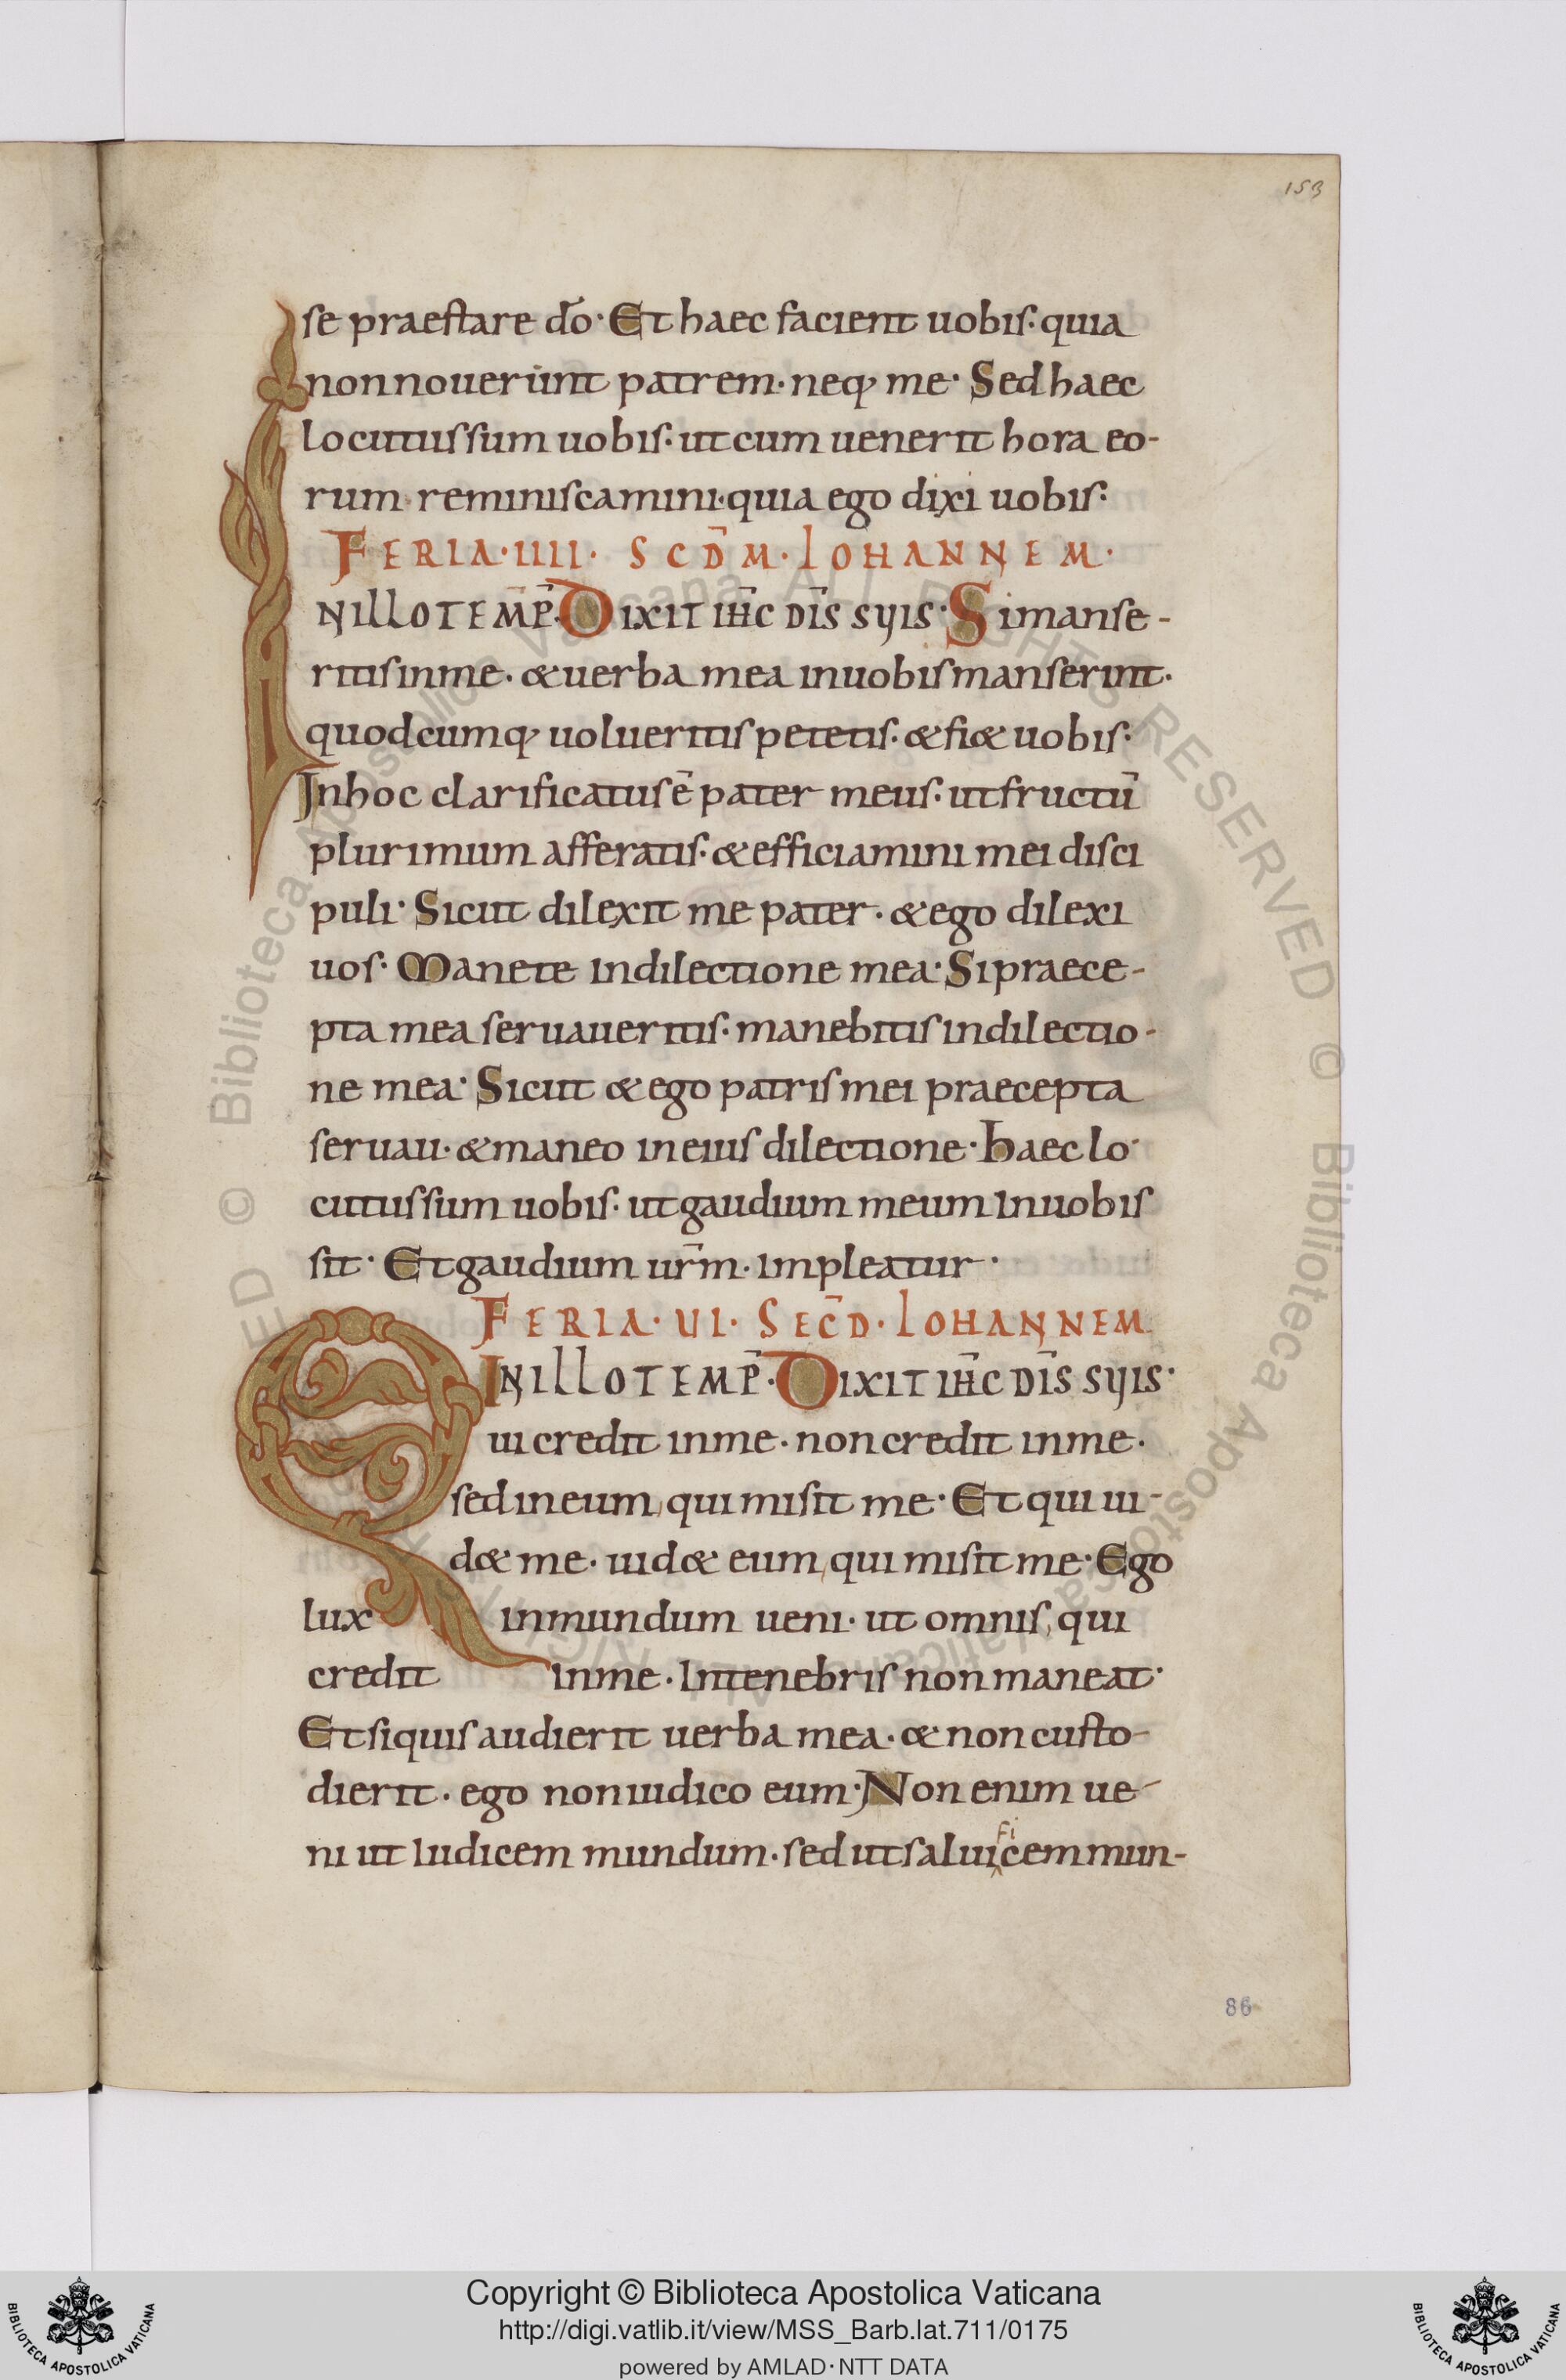 153
se praestare dō· Et haec facient uobis· quia
non nouerunt patrem· neq; me· Sed haec
locutus sum uobis· ut cum uenerit hora eo-
rum· reminiscamini· quia ego dixi uobis·
FERIA· IIII· SCD̄M· IOHANNEM·
IN ILLO TEMP̄· DIXIT IH̄C DĪS SUIS· Si manse-
ritis in me· & uerba mea in uobis manserint·
quodcumq; uolueritis petetis· & fi& uobis·
In hoc clarificatus ē pater meus· ut fructū
plurimum afferatis· & efficiamini mei disci
puli· Sicut dilexit me pater· & ego dilexi
uos· Manete in dilectione mea· Si praece-
pta mea seruaueritis· manebitis in dilectio-
ne mea· Sicut & ego patris mei praecepta
seruaui· & maneo in eius dilectione· haec lo-
cutus sum uobis· ut gaudium meum in uobis
sit· Et gaudium ur̄m· impleatur·
FERIA· UI· SEC̄D· IOHANNEM
IN ILLO TEMP̄· DIXIT IH̄C DĪS SUIS·
Qui credit in me· non credit in me·
sed in eum, qui misit me· Et qui ui-
d& me· uid& eum, qui misit me· Ego
lux in mundum ueni· ut omnis, qui
credit in me· In tenebris non maneat·
Et si quis audierit uerba mea· & non custo-
dierit· ego non iudico eum· Non enim ue-
ni ut Iudicem mundum· sed ut saluificem mun-
86
Copyright © Biblioteca Apostolica Vaticana
http://digi.vatlib.it/view/MSS_Barb.lat.711/0175
powered by AMLAD·NTT DATA
BIBLIOTECA APOSTOLICA VATICANA
BIBLIOTECA APOSTOLICA VATICANA